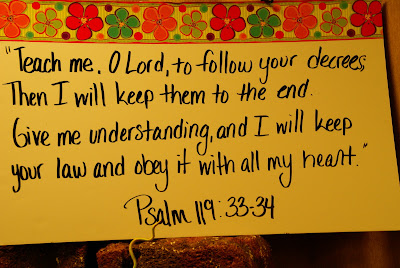 "Teach me, O Lord, to follow your decrees;
Then I will keep them to the end.
Give me understanding, and I will keep
your law and obey it with all my heart."
Psalm 119:33-34